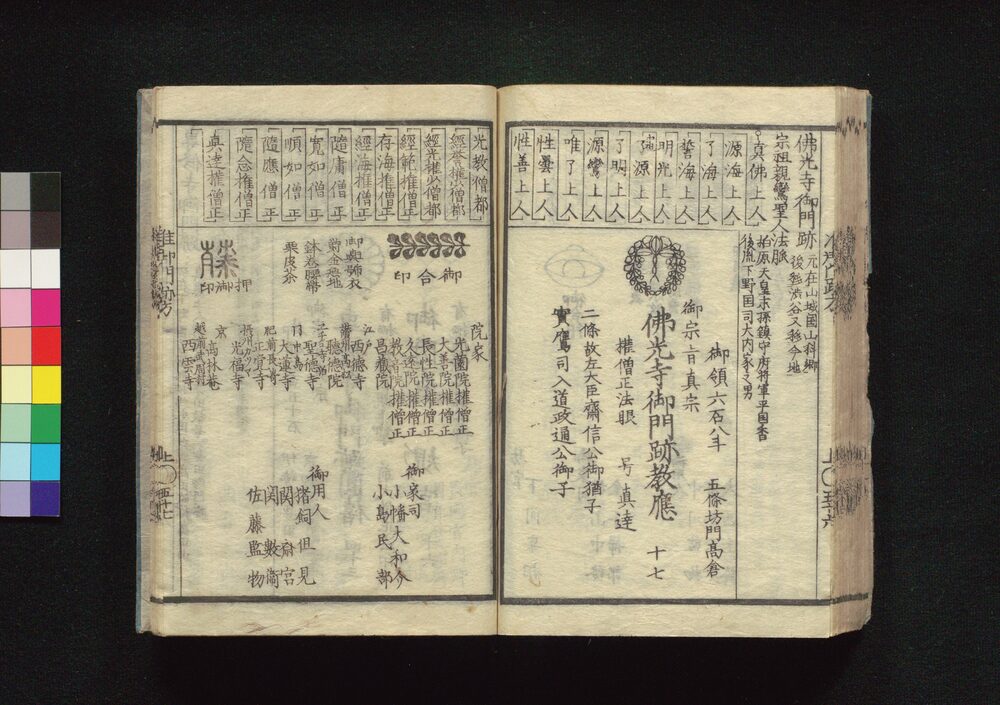 佛光寺御門跡
元在山城國山科郷
後移渋谷又移今地
宗祖親鸞聖人法脈
真佛上人
源海上人
了海上人
誓海上人
明光上人
了源上人
了明上人
源鸞上人
唯了上人
性曇上人
性善上人
柏原天皇末孫鎮守府将軍平国香
後胤下野国司大内家之男
御領六石八斗
五條坊門高倉
御宗旨真宗
佛光寺御門跡教應
十七
權僧正法眼
号真達
二條故左大臣齋信公御猶子
實鷹司入道政通公御子
光教僧都
經誉權少僧都
經光權少僧都
經範權僧正
存海權僧正
經海權僧正
隨庸僧正
寛如僧正
順如僧正
隨應僧正
隨念權僧正
真達權僧正
御合印
御輿舁衣
押御印
院家
光薗院權僧正
大善院權僧正
長性院權僧正
久遠院權僧正
教音院權僧正
昌蔵院
江戸
西徳寺
聴徳院
聖徳寺
大蓮寺
肥前長崎
正覚寺
光福寺
京
高林庵
西雲寺
御家司
小幡大和介
小島民部
御用人
猪飼但見
関齋宮
関數衛
佐藤監物